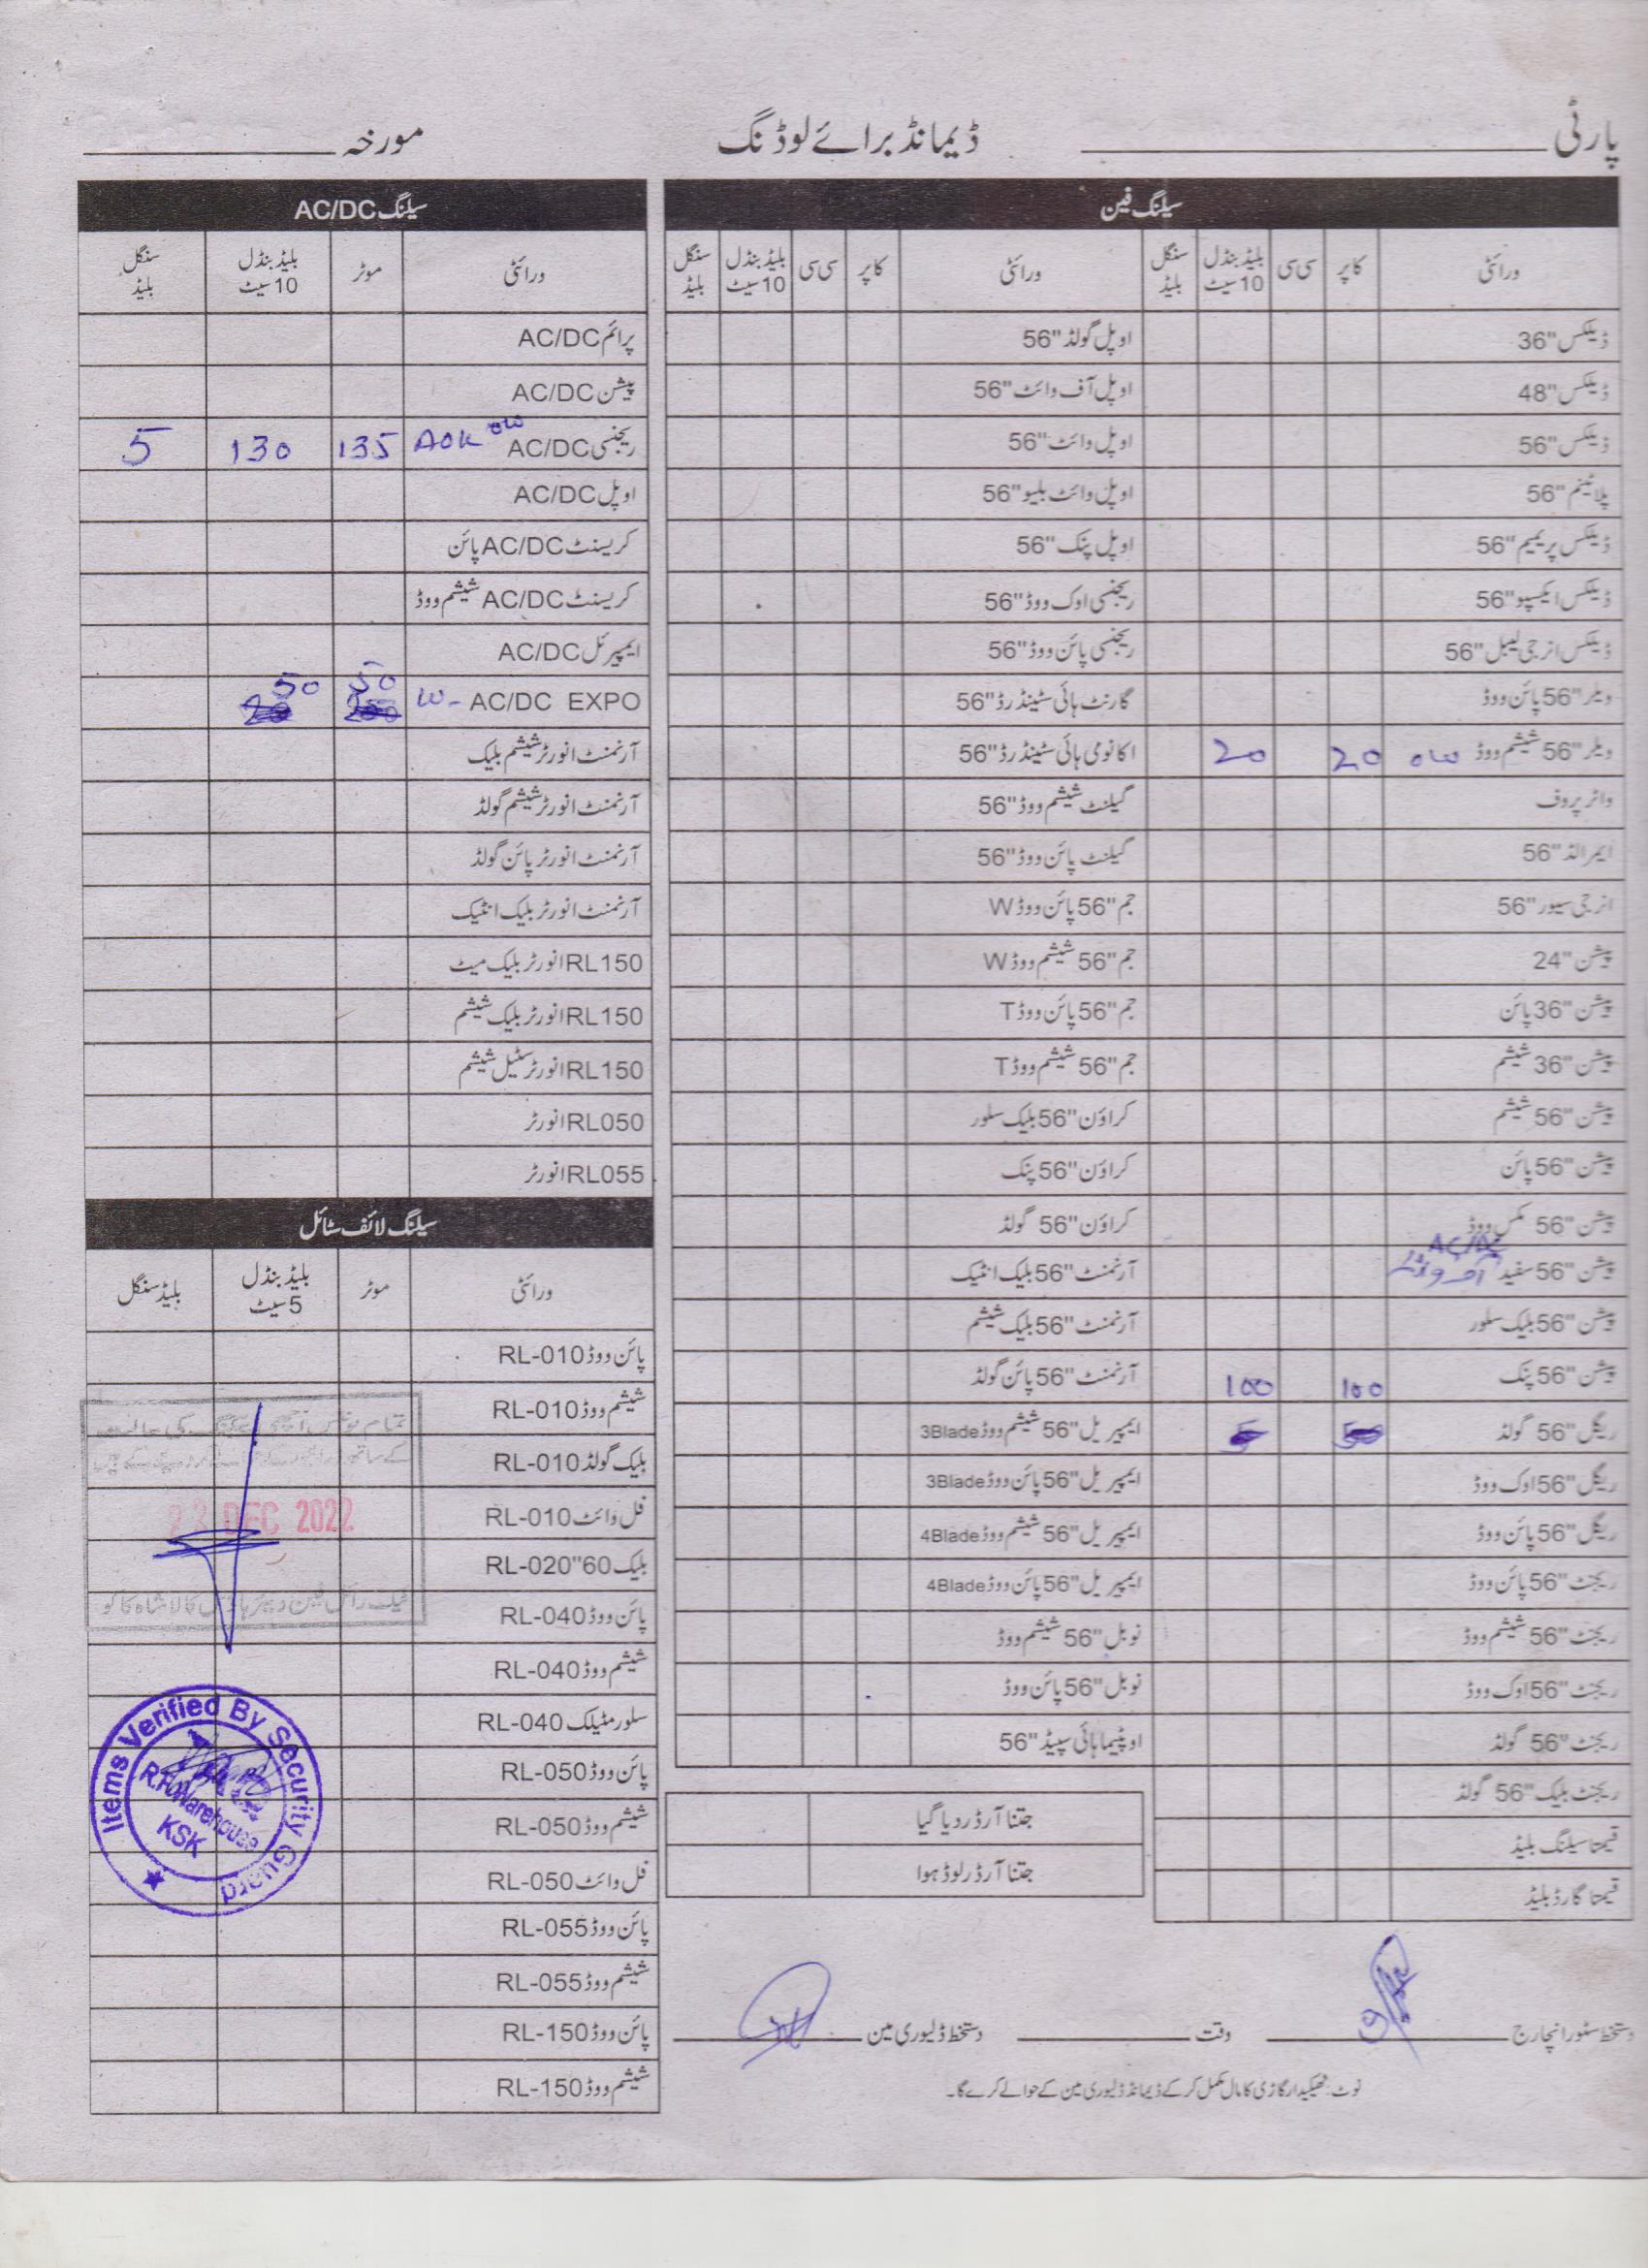 پارٹی
ڈیمانڈ برائے لوڈنگ
مورخہ
سیلنگ فین
ورائٹی کاپر سی سی بلیڈ بنڈل 10 سیٹ سنگل بلیڈ
ورائٹی کاپر سی سی بلیڈ بنڈل 10 سیٹ سنگل بلیڈ
ڈیلکس "36
ڈیلکس "48
ڈیلکس "56
پلاٹینم "56
ڈیلکس پریمیم "56
ڈیلکس ایکسپو "56
ڈیلکس انرجی لیبل "56
ویلر "56 پائن ووڈ
ویلر "56 شیشم ووڈ ow 20 20
واٹر پروف
ایمرالڈ "56
انرجی سیور "56
پیشن "24
پیشن "36 پائن
پیشن "36 شیشم
پیشن "56 شیشم
پیشن "56 پائن
پیشن "56 مکس ووڈ
AC/DC
پیشن "56 سفید
پیشن "56 بلیک سلور
پیشن "56 پنک 100 100
ریگل "56 گولڈ
ریگل "56 اوک ووڈ
ریگل "56 پائن ووڈ
ریجنٹ "56 پائن ووڈ
ریجنٹ "56 شیشم ووڈ
ریجنٹ "56 اوک ووڈ
ریجنٹ "56 گولڈ
ریجنٹ بلیک "56 گولڈ
قیمتا سیلنگ بلیڈ
قیمتا گارڈ بلیڈ
اوپل گولڈ "56
اوپل آف وائٹ "56
اوپل وائٹ "56
اوپل وائٹ بلیو "56
اوپل پنک "56
ریجنسی اوک ووڈ "56
ریجنسی پائن ووڈ "56
گارنٹ ہائی سٹینڈرڈ "56
اکانومی ہائی سٹینڈرڈ "56
گیلنٹ شیشم ووڈ "56
گیلنٹ پائن ووڈ "56
جم "56 پائن ووڈ W
جم "56 شیشم ووڈ W
جم "56 پائن ووڈ T
جم "56 شیشم ووڈ T
کراؤن "56 بلیک سلور
کراؤن "56 پنک
کراؤن "56 گولڈ
آرنمنٹ "56 بلیک انٹیک
آرنمنٹ "56 بلیک شیشم
آرنمنٹ "56 پائن گولڈ
ایمپریل "56 شیشم ووڈ 3Blade
ایمپریل "56 پائن ووڈ 3Blade
ایمپریل "56 شیشم ووڈ 4Blade
ایمپریل "56 پائن ووڈ 4Blade
نوبل "56 شیشم ووڈ
نوبل "56 پائن ووڈ
اوپٹیما ہائی سپیڈ "56
جتنا آرڈر دیا گیا
جتنا آرڈر لوڈ ہوا
سیلنگ AC/DC
ورائٹی موٹر بلیڈ بنڈل 10 سیٹ سنگل بلیڈ
پرائم AC/DC
پیشن AC/DC
ریجنسی AC/DC AOK ow 135 130 5
اوپل AC/DC
کریسنٹ AC/DC پائن
کریسنٹ AC/DC شیشم ووڈ
ایمپیرئل AC/DC
AC/DC EXPO W- 50 50
آرنمنٹ انورٹر شیشم بلیک
آرنمنٹ انورٹر شیشم گولڈ
آرنمنٹ انورٹر پائن گولڈ
آرنمنٹ انورٹر بلیک انٹیک
RL150 انورٹر بلیک میٹ
RL150 انورٹر بلیک شیشم
RL150 انورٹر سٹیل شیشم
RL050 انورٹر
RL055 انورٹر
سیلنگ لائف سٹائل
ورائٹی موٹر بلیڈ بنڈل 5 سیٹ بلیڈ سنگل
پائن ووڈ RL-010
شیشم ووڈ RL-010
بلیک گولڈ RL-010
فل وائٹ RL-010
بلیک RL-020"60
پائن ووڈ RL-040
شیشم ووڈ RL-040
سلور مٹیلک RL-040
پائن ووڈ RL-050
شیشم ووڈ RL-050
فل وائٹ RL-050
پائن ووڈ RL-055
شیشم ووڈ RL-055
پائن ووڈ RL-150
شیشم ووڈ RL-150
23 DEC 2022
Items Verified By Security Guard
R.F. Warehouse
KSK
دستخط سٹور انچارج
وقت
دستخط ڈلیوری مین
نوٹ: ٹھیکیدار گاڑی کا مال مکمل کر کے ڈیمانڈ ڈلیوری مین کے حوالے کرے گا۔